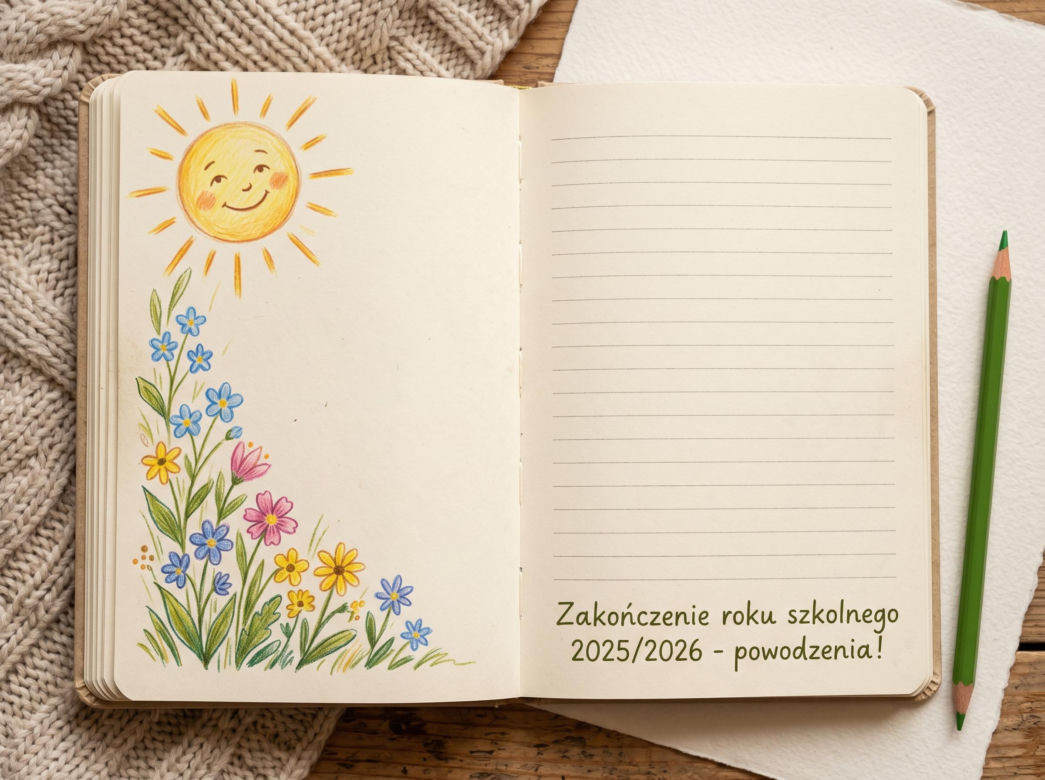 Zakończenie roku szkolnego
2025/2026 - powodzenia!